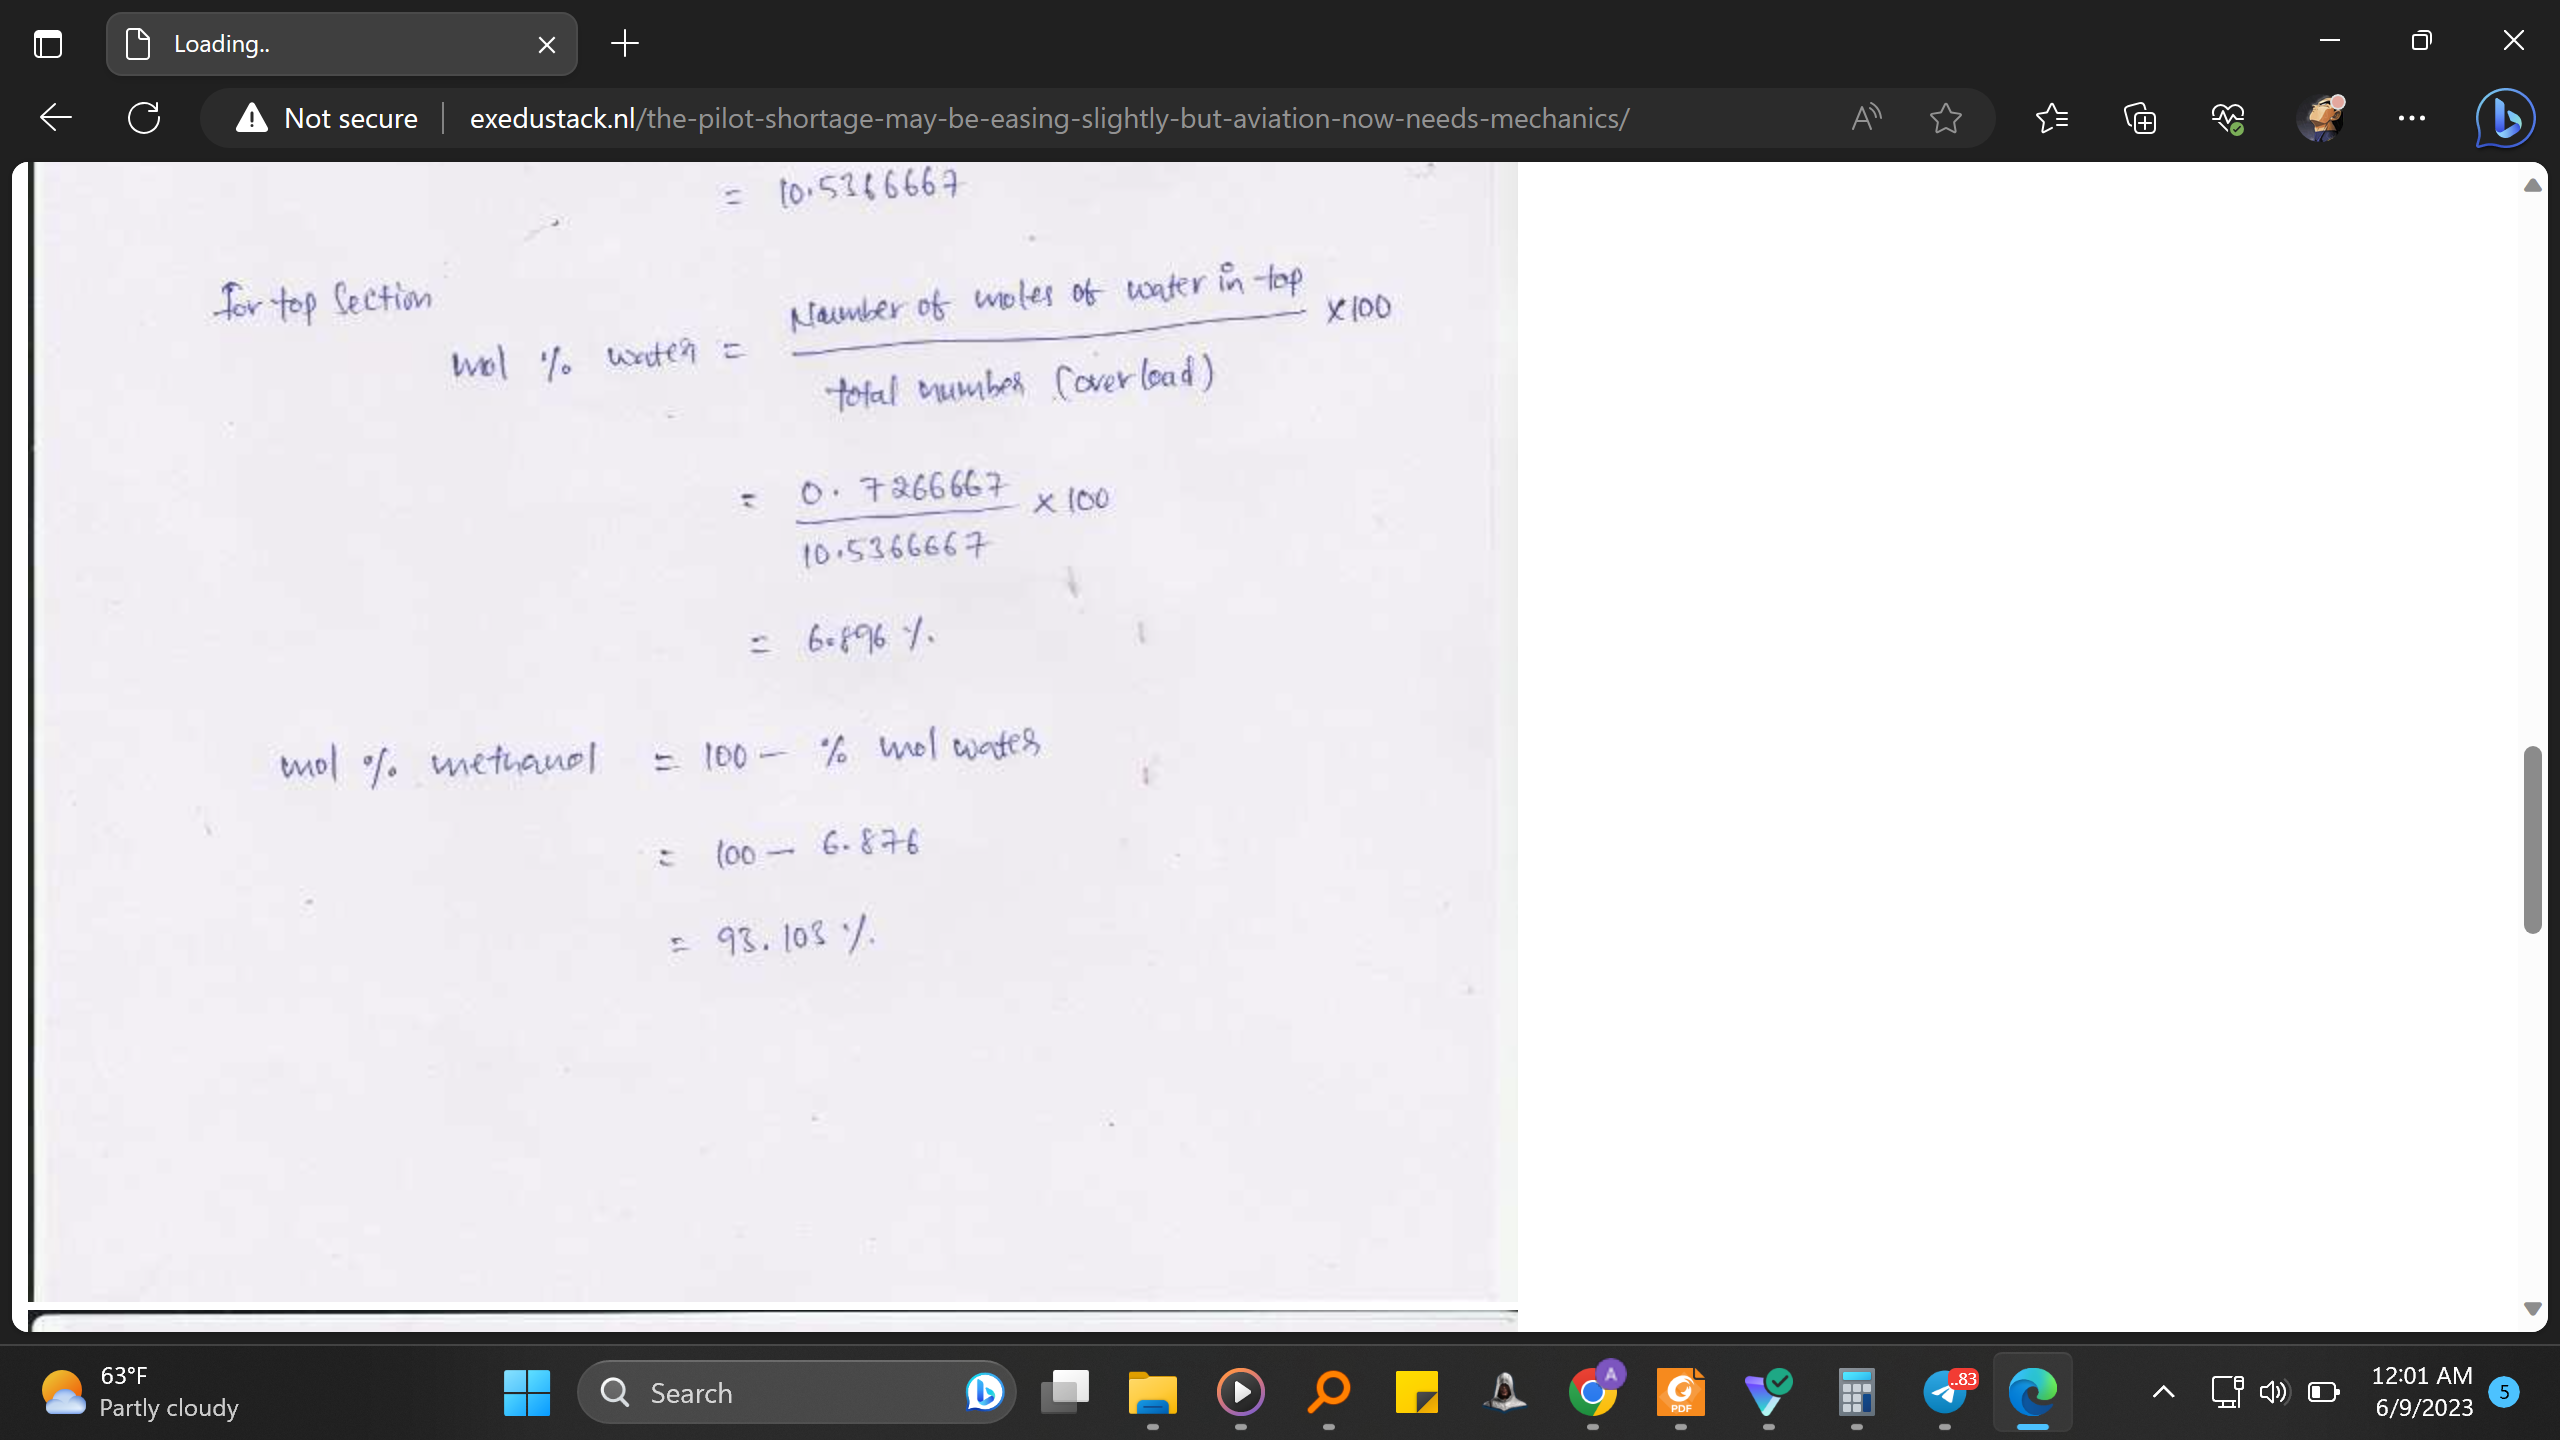 Loading..
Not secure
exedustack.nl/the-pilot-shortage-may-be-easing-slightly-but-aviation-now-needs-mechanics/
= 10.5366667
For top Section
mol % water = Naumber of moles of water in top
total number (overload) × 100
= 0.7266667
10.5366667 × 100
= 6.896 %.
mol % methanol = 100 - % mol water
= 100 - 6.876
= 93.103 %.
63°F
Partly cloudy
Search
A
PDF
..83
12:01 AM
6/9/2023
5